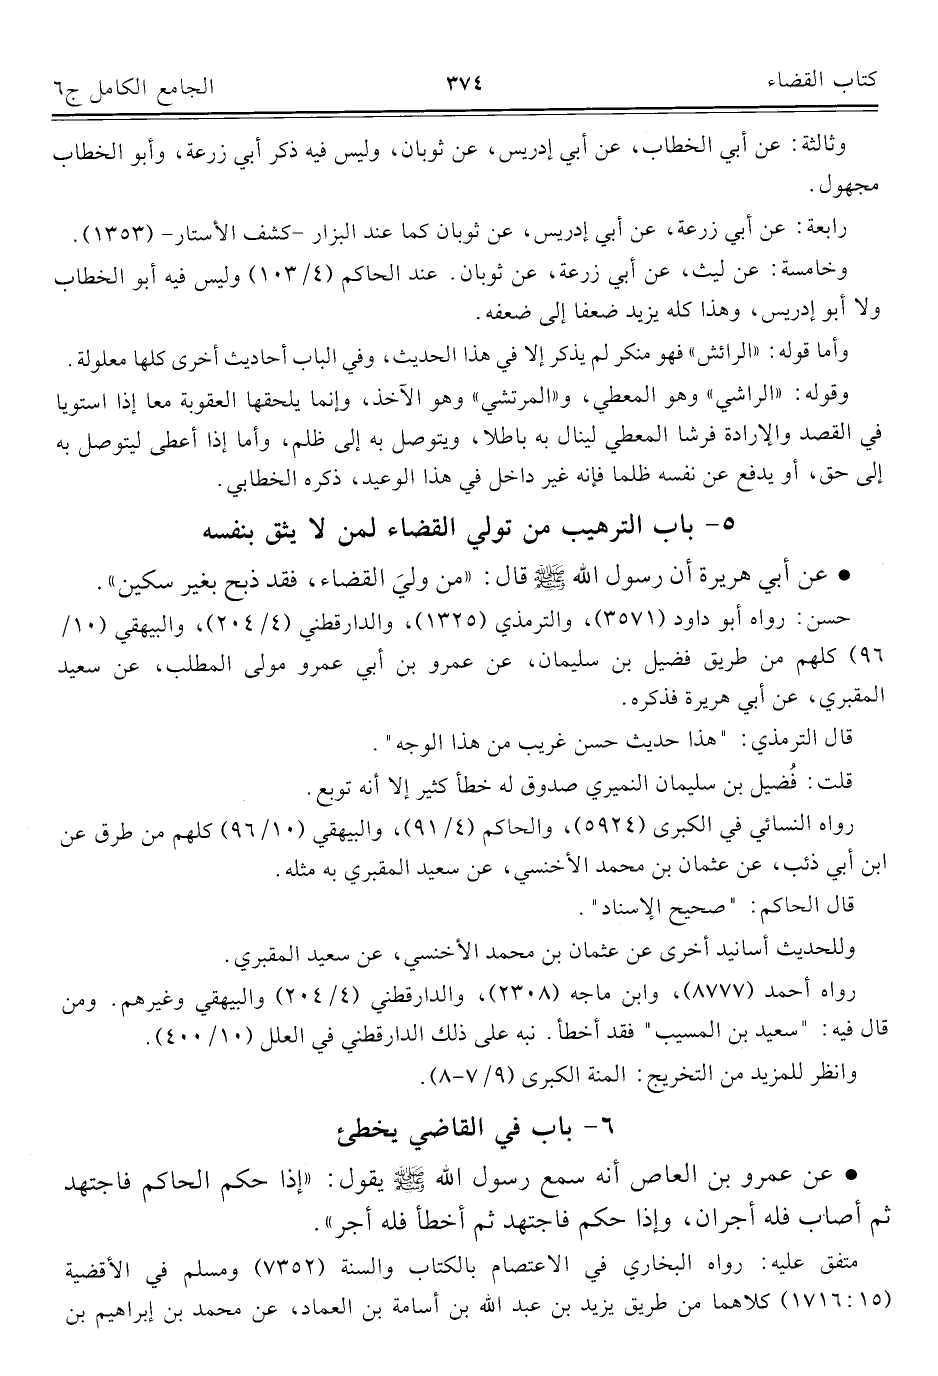 كتاب القضاء ٣٧٤ الجامع الكامل ج٦
وثالثة: عن أبي الخطاب، عن أبي إدريس، عن ثوبان، وليس فيه ذكر أبي زرعة، وأبو الخطاب
مجهول.
رابعة: عن أبي زرعة، عن أبي إدريس، عن ثوبان كما عند البزار -كشف الأستار- (١٣٥٣).
وخامسة: عن ليث، عن أبي زرعة، عن ثوبان. عند الحاكم (٤/ ١٠٣) وليس فيه أبو الخطاب
ولا أبو إدريس، وهذا كله يزيد ضعفا إلى ضعفه.
وأما قوله: «الرائش» فهو منكر لم يذكر إلا في هذا الحديث، وفي الباب أحاديث أخرى كلها معلولة.
وقوله: «الراشي» وهو المعطي، و«المرتشي» وهو الآخذ، وإنما يلحقها العقوبة معا إذا استويا
في القصد والإرادة فرشا المعطي لينال به باطلا، ويتوصل به إلى ظلم، وأما إذا أعطى ليتوصل به
إلى حق، أو يدفع عن نفسه ظلما فإنه غير داخل في هذا الوعيد، ذكره الخطابي.
٥- باب الترهيب من تولي القضاء لمن لا يثق بنفسه
• عن أبي هريرة أن رسول الله ﷺ قال: «من وليَ القضاء، فقد ذبح بغير سكين».
حسن: رواه أبو داود (٣٥٧١)، والترمذي (١٣٢٥)، والدارقطني (٤/ ٢٠٤)، والبيهقي (١٠/
٩٦) كلهم من طريق فضيل بن سليمان، عن عمرو بن أبي عمرو مولى المطلب، عن سعيد
المقبري، عن أبي هريرة فذكره.
قال الترمذي: "هذا حديث حسن غريب من هذا الوجه".
قلت: فُضيل بن سليمان النميري صدوق له خطأ كثير إلا أنه توبع.
رواه النسائي في الكبرى (٥٩٢٤)، والحاكم (٤/ ٩١)، والبيهقي (١٠/ ٩٦) كلهم من طرق عن
ابن أبي ذئب، عن عثمان بن محمد الأخنسي، عن سعيد المقبري به مثله.
قال الحاكم: "صحيح الإسناد".
وللحديث أسانيد أخرى عن عثمان بن محمد الأخنسي، عن سعيد المقبري.
رواه أحمد (٨٧٧٧)، وابن ماجه (٢٣٠٨)، والدارقطني (٤/ ٢٠٤) والبيهقي وغيرهم. ومن
قال فيه: "سعيد بن المسيب" فقد أخطأ. نبه على ذلك الدارقطني في العلل (١٠/ ٤٠٠).
وانظر للمزيد من التخريج: المنة الكبرى (٩/ ٧-٨).
٦- باب في القاضي يخطئ
• عن عمرو بن العاص أنه سمع رسول الله ﷺ يقول: «إذا حكم الحاكم فاجتهد
ثم أصاب فله أجران، وإذا حكم فاجتهد ثم أخطأ فله أجر».
متفق عليه: رواه البخاري في الاعتصام بالكتاب والسنة (٧٣٥٢) ومسلم في الأقضية
(١٥: ١٧١٦) كلاهما من طريق يزيد بن عبد الله بن أسامة بن العماد، عن محمد بن إبراهيم بن